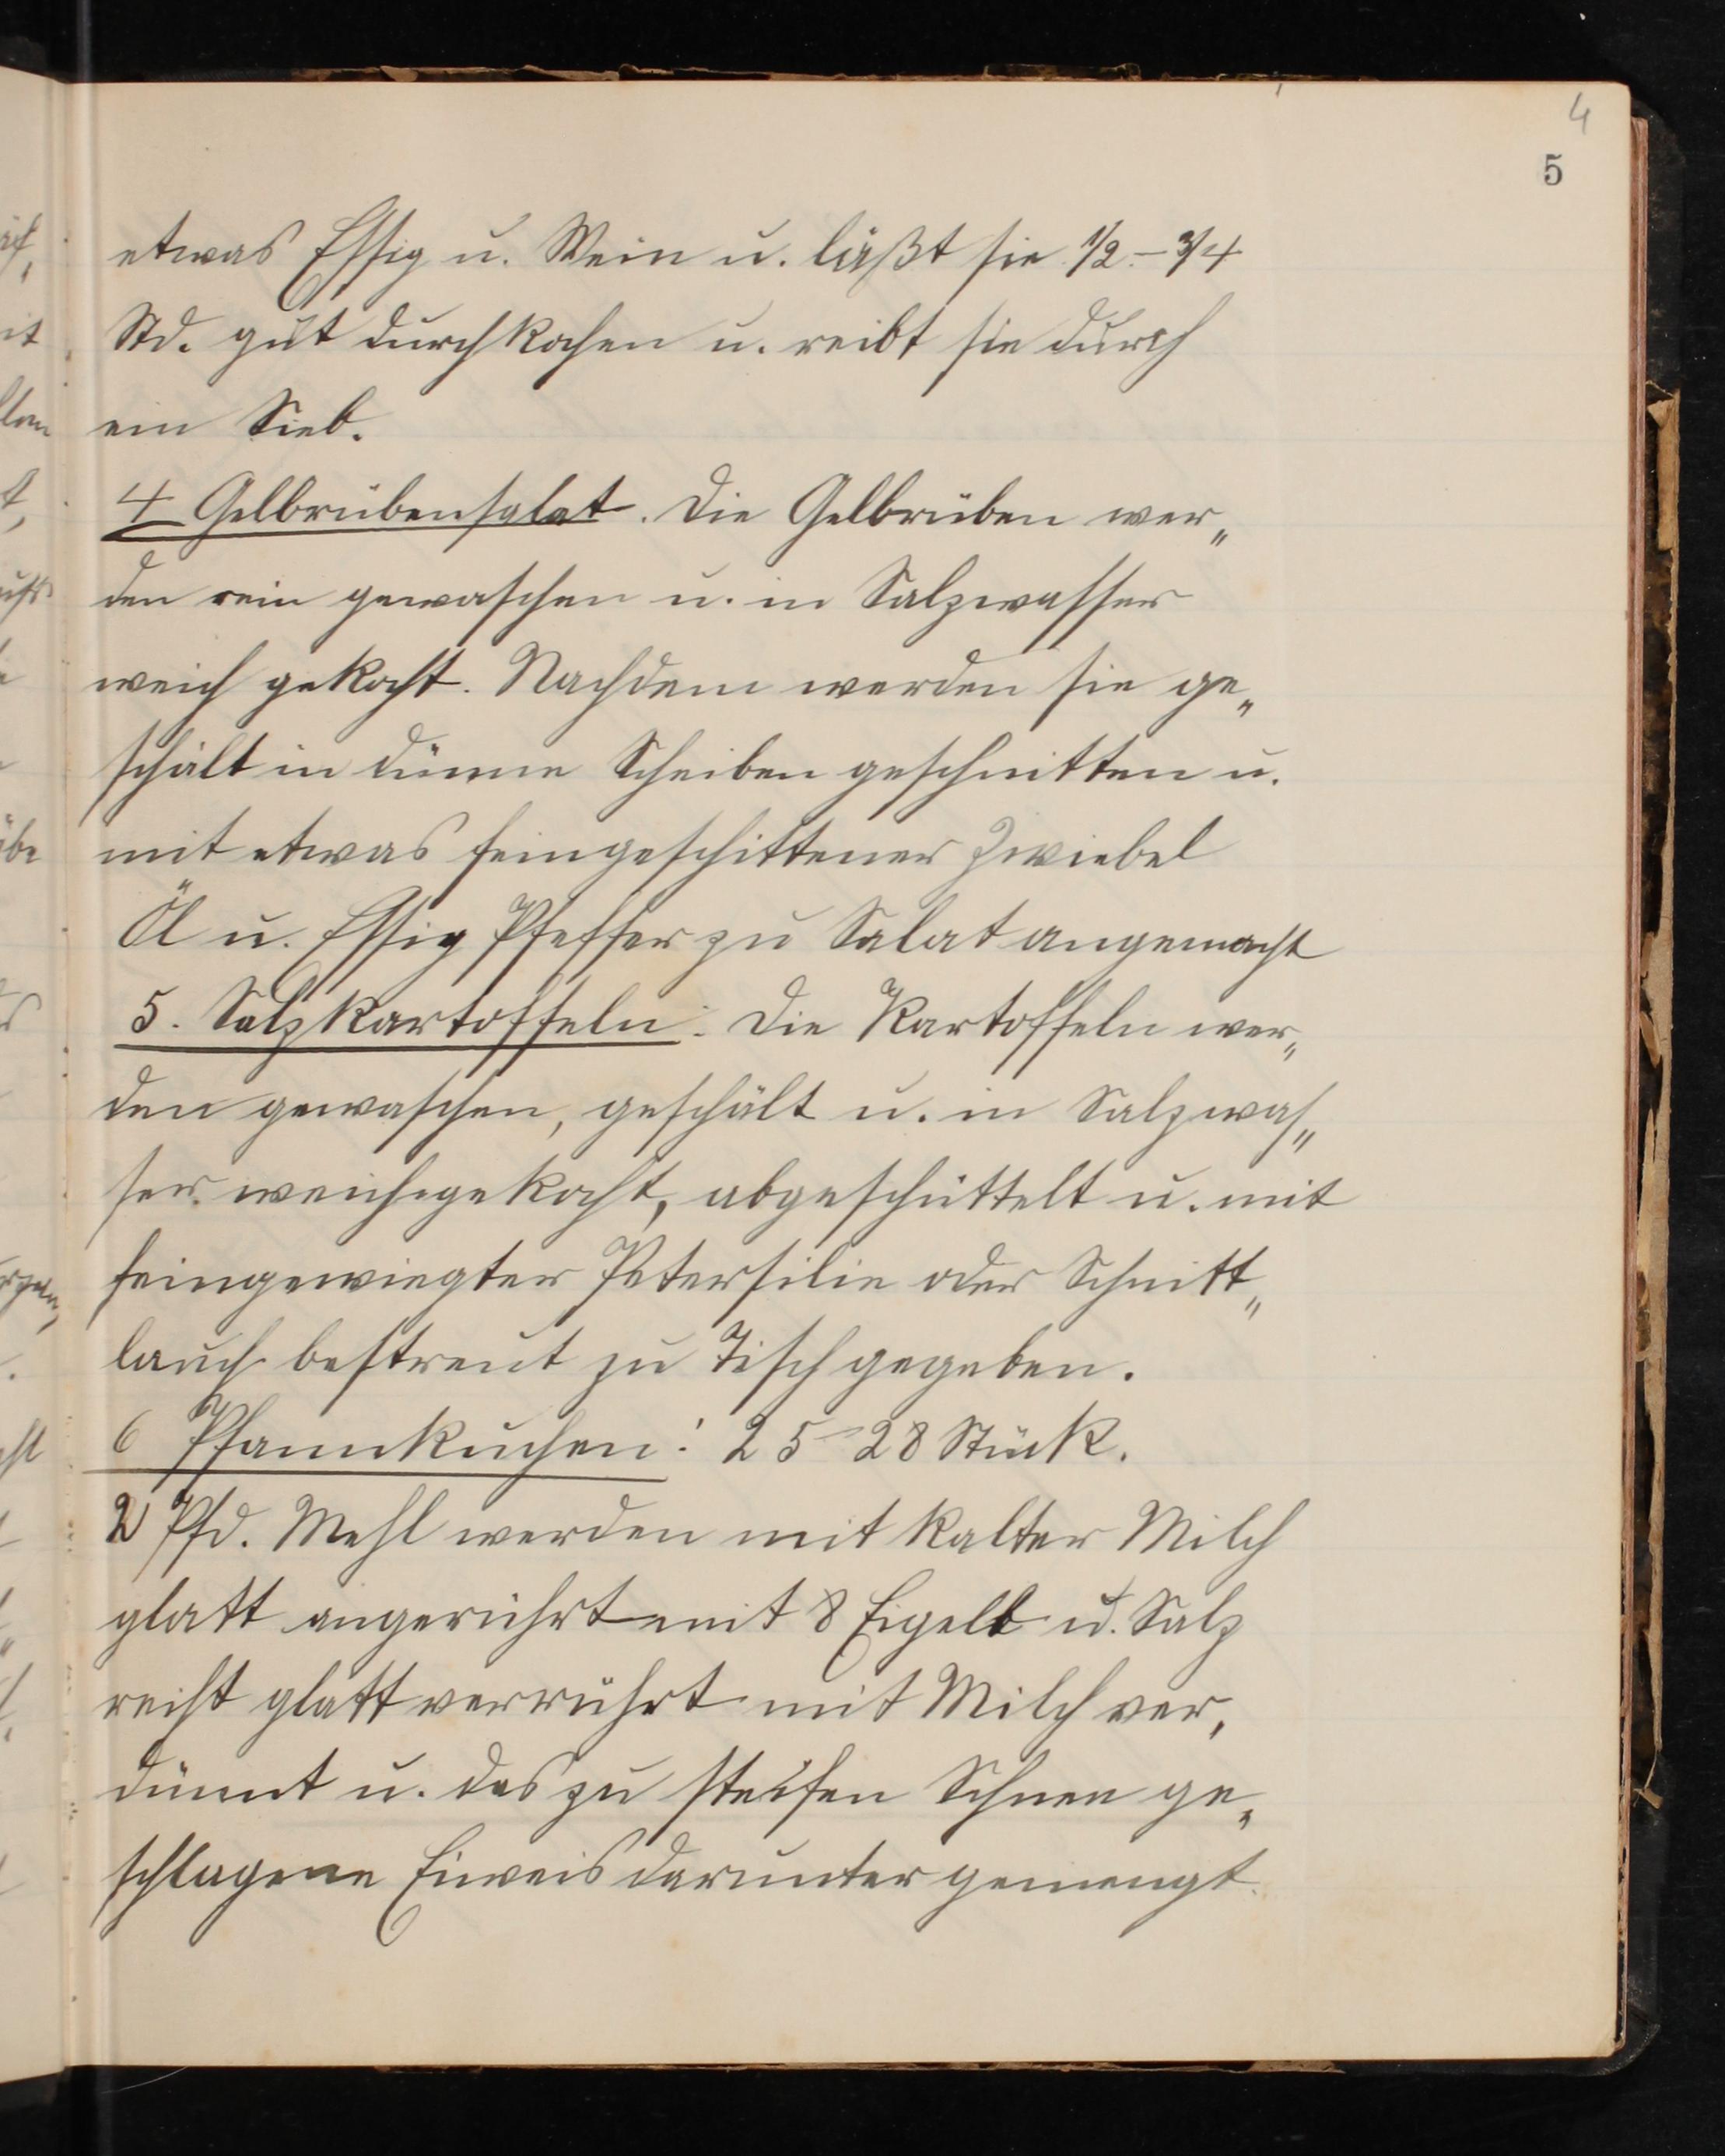 4
5
etwas Essig u. Wein u. läßt sie 1/2 - 3/4
Std. gut durchkochen u. reibt sie durch
ein Sieb.
4 Gelbrübensalat. Die Gelbrüben wer„
den rein gewaschen u. in Salzwasser
weich gekocht. Nachdem werden sie ge„
schält in dünne Scheiben geschnitten u.
mit etwas feingeschittener Zwiebel
Öl u. Essig Pfeffer zu Salat angemacht
5. Salzkartoffeln: Die Kartoffeln wer„
den gewaschen, geschält u. in Salzwas„
ser weichgekocht, abgeschüttelt u. mit
feingewiegter Petersilie oder Schnitt„
lauch bestreut zu Tisch gegeben.
6 Pfannkuchen: 25-28 Stück.
2 Pfd. Mehl werden mit kalter Milch
glatt angerührt mit 8 Eigelb u. Salz
recht glatt verrührt mit Milch ver,
dünnt u. das zu steifen Schnee ge„
schlagene Eiweis daruntergemengt.